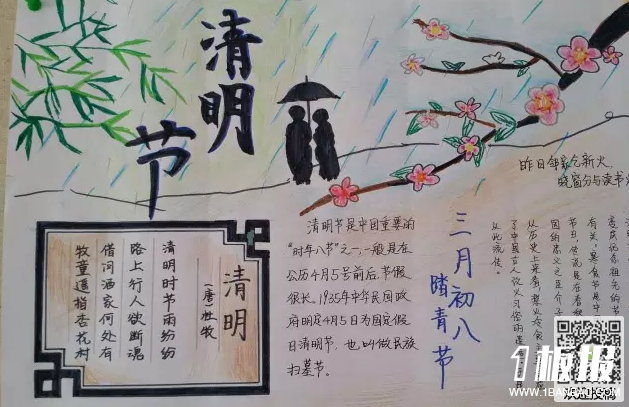 清明
节
清明
(唐)杜牧
清明时节雨纷纷
路上行人欲断魂
借问酒家何处有
牧童遥指杏花村
清明节是中国重要的
"时年八节"之一,一般是在
公历4月5号前后,节假
很长。1935年中华民国政
府明定4月5日为国定假
日清明节,也叫做民族
扫墓节。
三月初八
踏青节
昨日邻家乞新火,
晓窗分与读书
有关,寒食节是中
节日,传说是在春秋
从历史上来看,禁火冷食
从此流传。
1板报
WWW.1BANBAO.COM